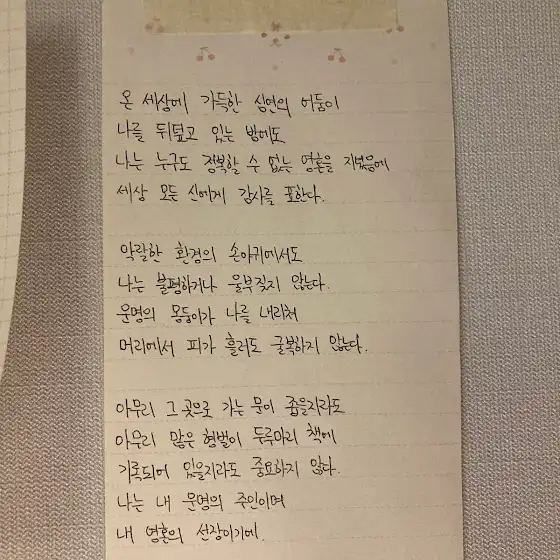 온 세상에 가득한 심연의 어둠이
나를 뒤덮고 있는 밤에도
나는 누구도 정복할 수 없는 영혼을 지녔음에
세상 모든 신에게 감사를 표한다.
악랄한 환경의 손아귀에서도
나는 불평하거나 울부짖지 않는다.
운명의 몽둥이가 나를 내리쳐
머리에서 피가 흘러도 굴복하지 않는다.
아무리 그 곳으로 가는 문이 좁을지라도
아무리 많은 형벌이 두루마리 책에
기록되어 있을지라도 중요하지 않다.
나는 내 운명의 주인이며
내 영혼의 선장이기에.